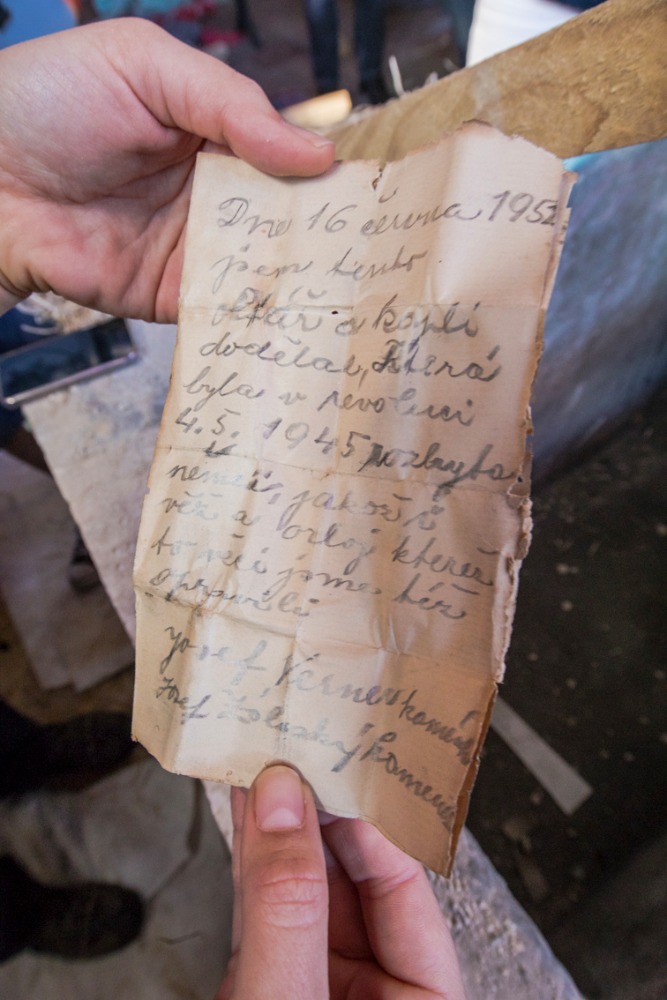 Dne 16 června 1952
jsem tento
oltář a kapli
dodělal, která
byla v revoluci
4.5. 1945 rozbyta
němci, jakož i
věž a orloj kteréž
to věci jsme též
opravili
Josef Verner kameník
Josef Zóleský kameník